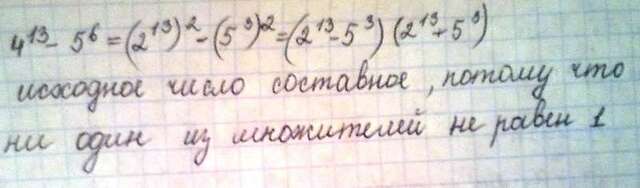 4¹³ - 5⁶ = (2¹³)² - (5³)² = (2¹³ - 5³) (2¹³ + 5³)
исходное число составное, потому что
ни один из множителей не равен 1